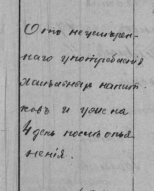 Отъ неумѣрен-
наго употребленія
хмѣльныхъ напит-
ковъ и уже на
4 день послѣ опья
ненія.